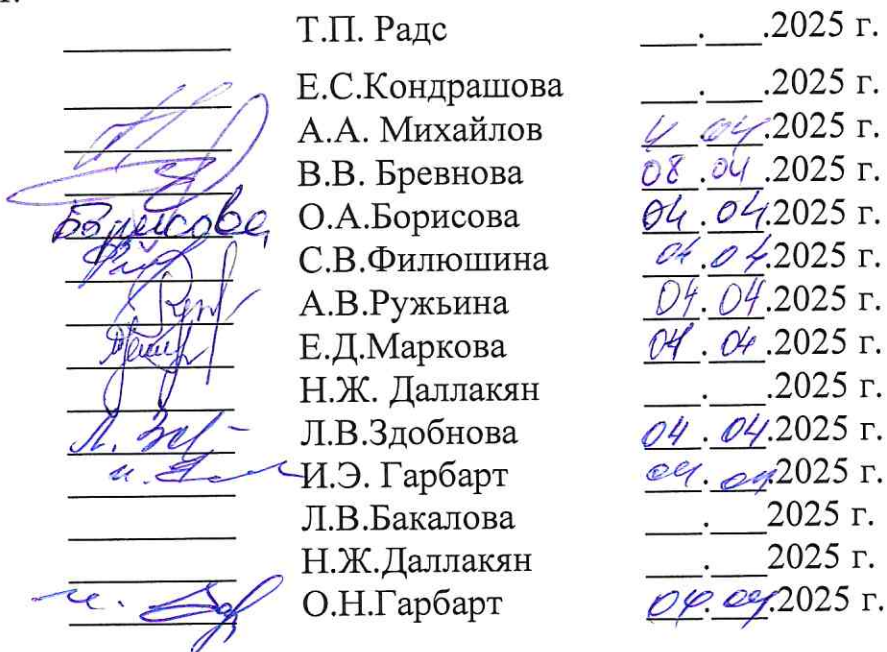 __________ Т.П. Радс ___.___.2025 г.
__________ Е.С.Кондрашова ___.___.2025 г.
А.А. Михайлов 04.2025 г.
В.В. Бревнова 08.04.2025 г.
Борисова О.А.Борисова 04.04.2025 г.
С.В.Филюшина 04.04.2025 г.
А.В.Ружьина 04.04.2025 г.
Е.Д.Маркова 04.04.2025 г.
__________ Н.Ж. Даллакян ___.___.2025 г.
Л.В.Здобнова 04.04.2025 г.
И.Э. Гарбарт 04.04.2025 г.
__________ Л.В.Бакалова ___.___2025 г.
__________ Н.Ж.Даллакян ___.___2025 г.
О.Н.Гарбарт 04.04.2025 г.